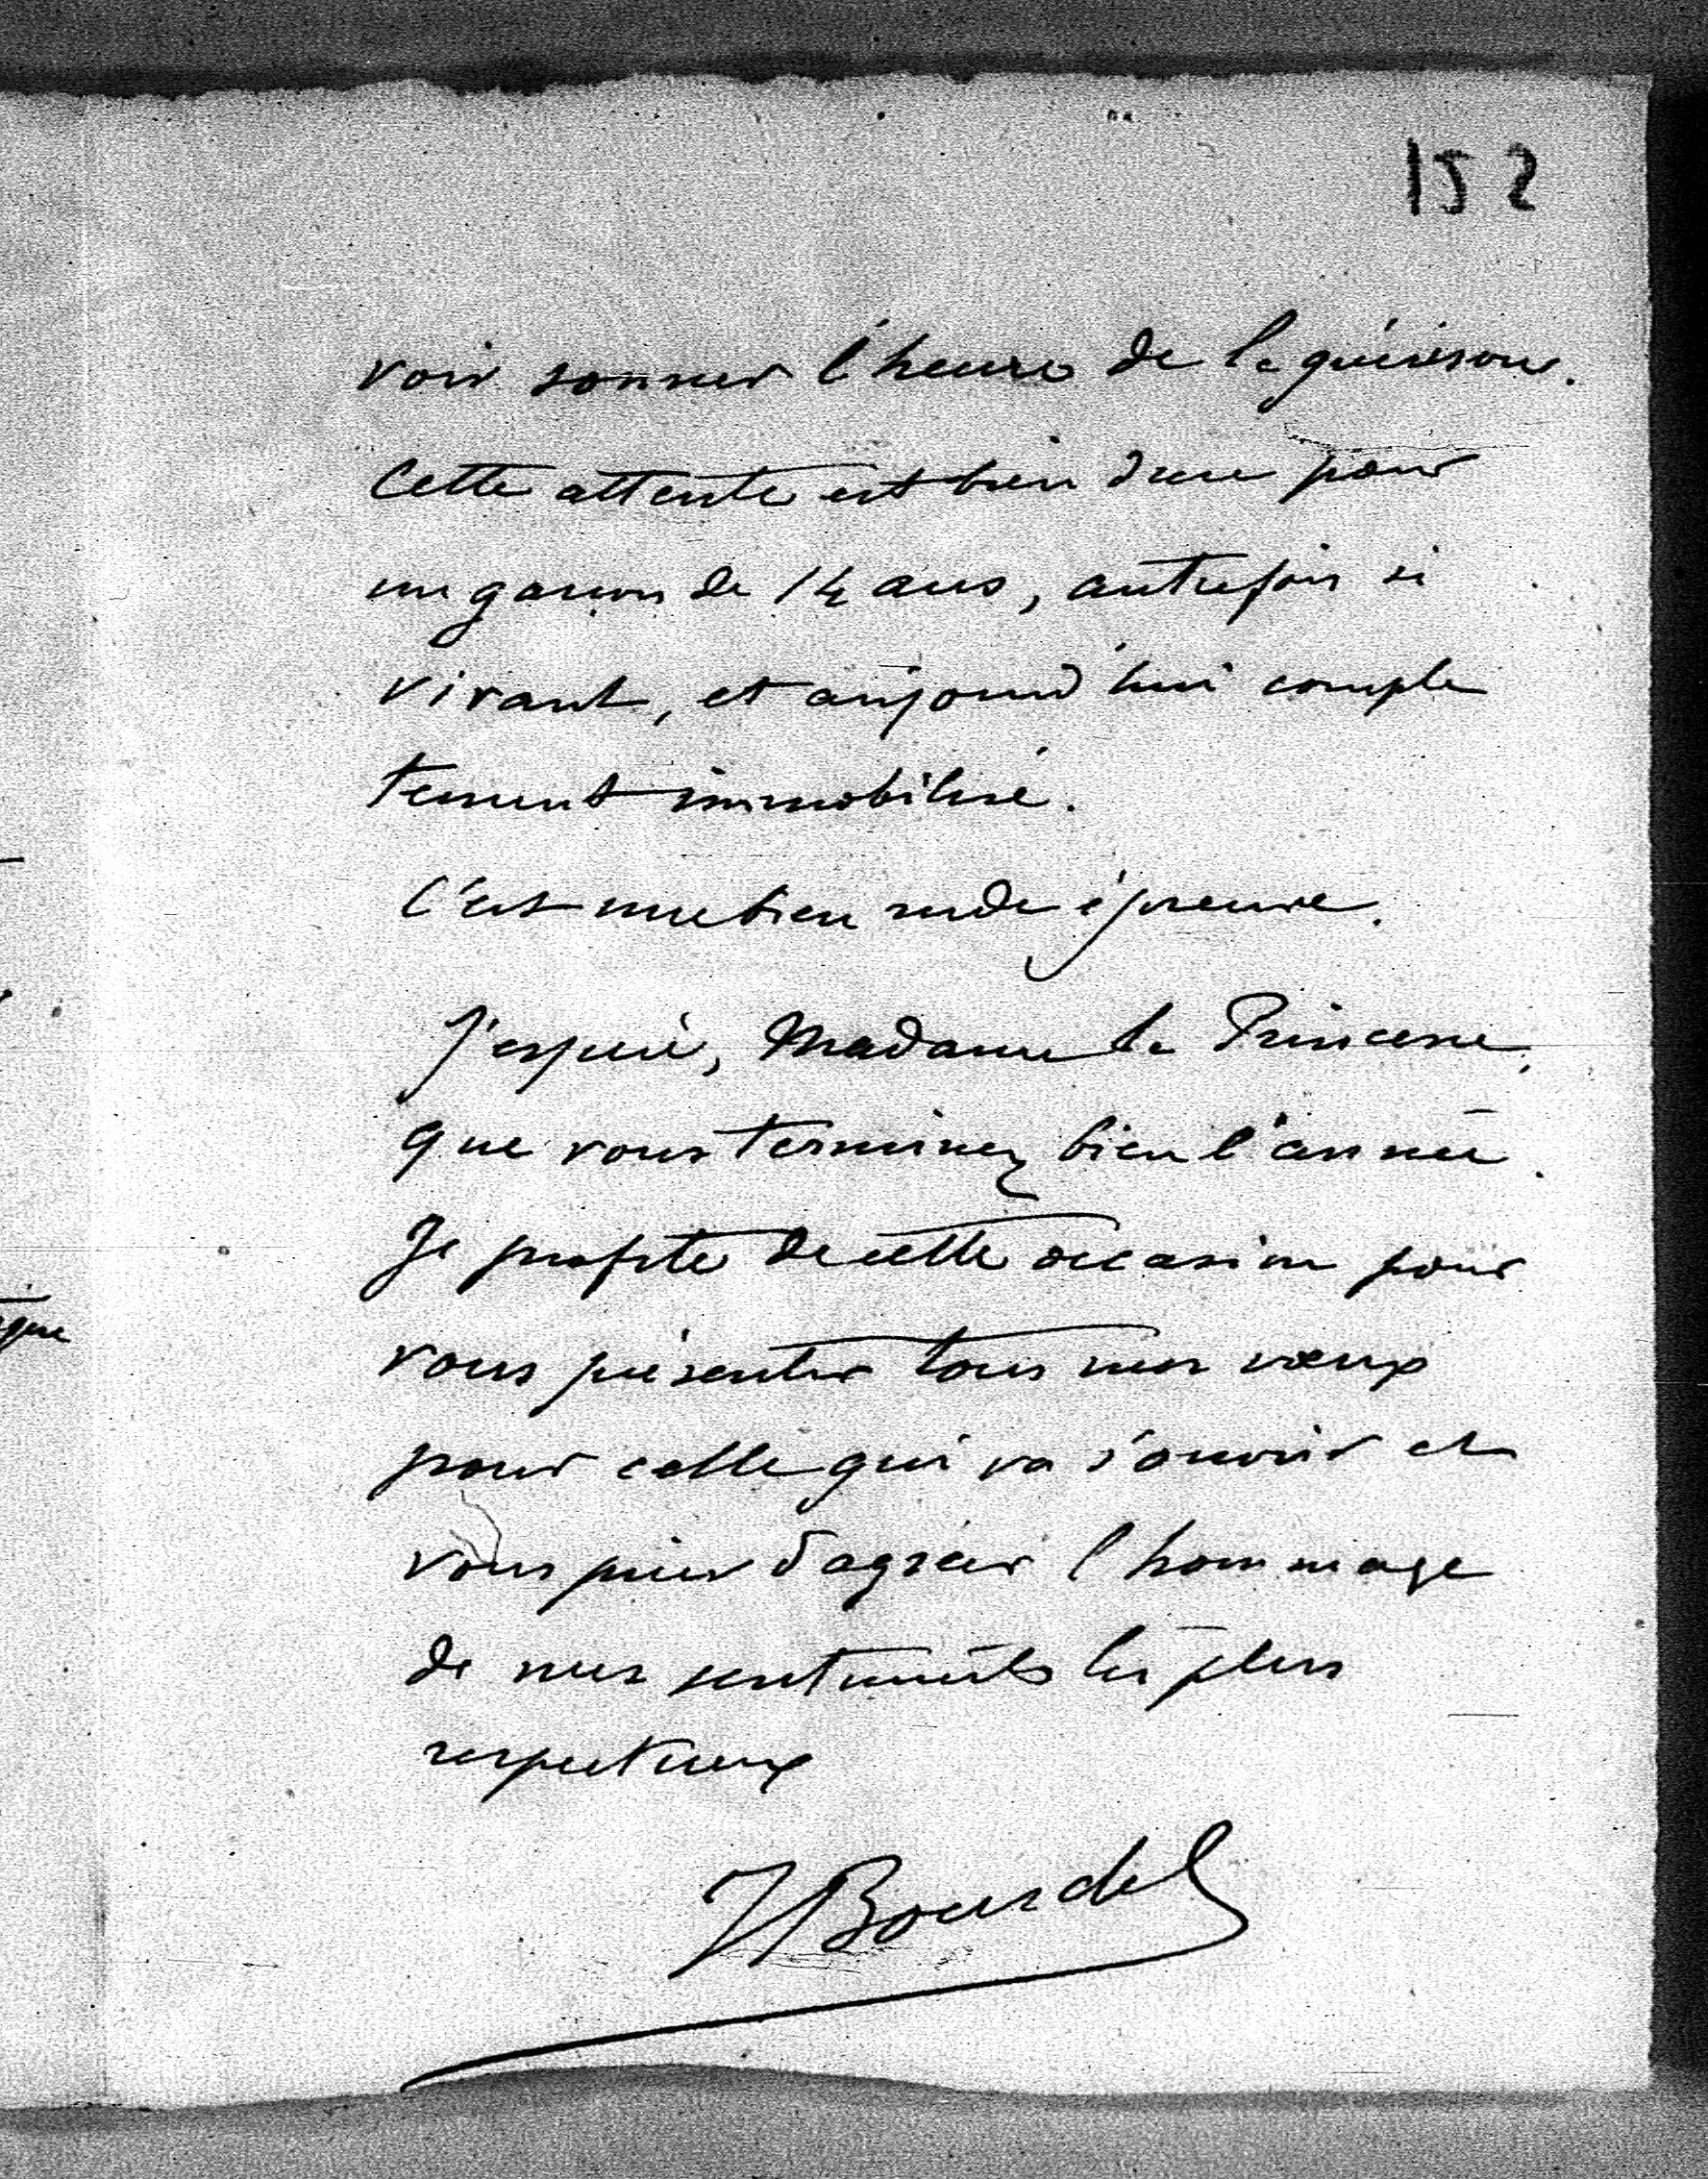 152
voir sonner l'heure de la guérison.
Cette attente est bien dure pour
un garçon de 14 ans, autrefois si
vivant, et aujourd'hui complè
tement immobilisé.
C'est une bien rude épreuve.
J'espère, Madame la Princesse,
que vous terminez bien l'année.
Je profite de cette occasion pour
vous présenter tous mes vœux
pour celle qui va s'ouvrir et
vous prier d'agréer l'hommage
de mes sentiments les plus
respectueux
JBourdel